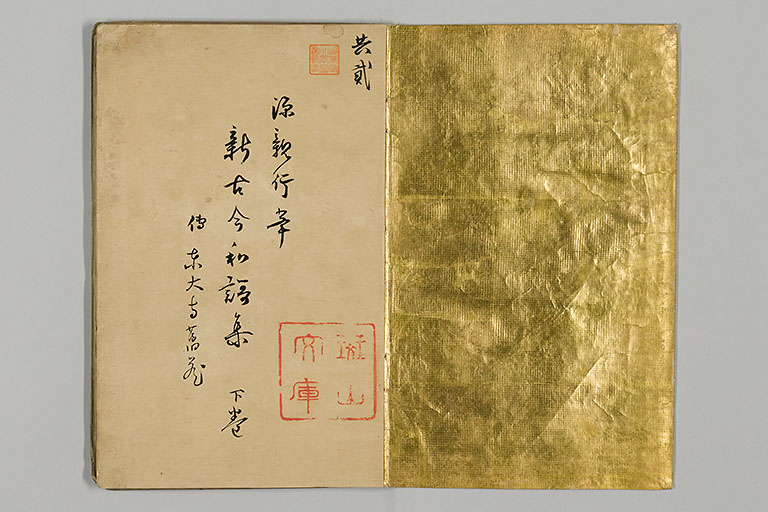 共貳
源親行筆
新古今和謌集 下巻
傳東大寺舊蔵
文庫